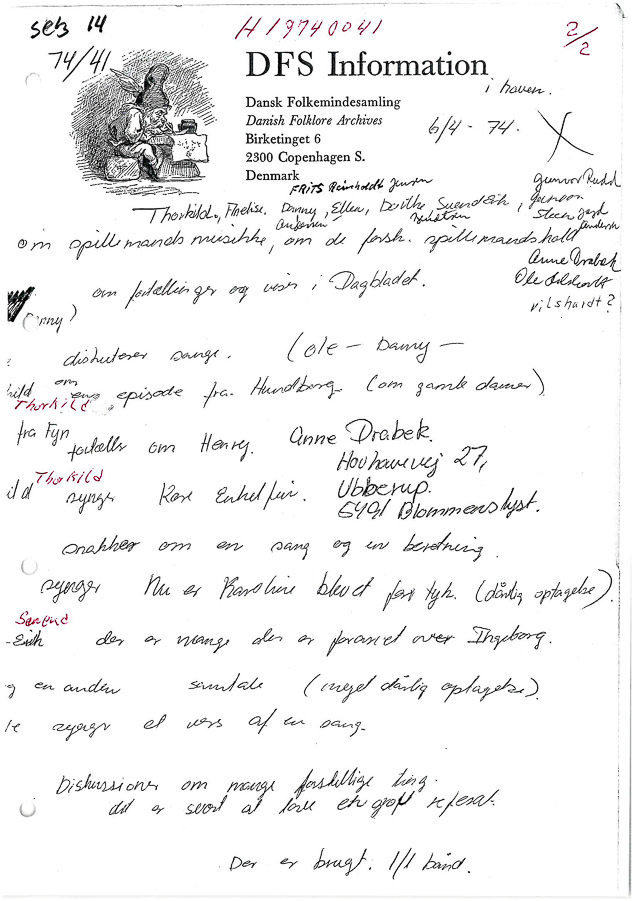 seb 14
H 19740041
2/2
74/41
DFS Information
i haven.
Dansk Folkemindesamling
Danish Folklore Archives
Birketinget 6
2300 Copenhagen S.
Denmark
6/4 - 74.
Frits Reinholdt Jensen
Gunvor Rudd
Thorkild, Danny, Ellen, Dorthe
Steen
om spillemandsmusikke, om de forsk. spillemandshold
Anne Drabek
om fortællinger og viser i Dagbladet.
Ole
vilshardt?
nny)
diskuterer sange. (Ole - Danny -
hild om episode fra Hundborg (om gamle damer)
Thorkild
fra Fyn
fortæller om Henry. Anne Drabek.
Hovhavevej 27,
Thorkild
ild synger Kære Enkelfin. Ubberup.
5491 Blommenslyst.
snakker om en sang og en beretning.
synger Nu er Karoline blevet for tyk. (dårlig optagelse).
Svend
-Erik der er mange der er forarret over Ingeborg.
g en anden samtale (meget dårlig optagelse).
le synger et vers af en sang.
Diskussioner om mange forskellige ting.
det er svært at lave et groft referat.
Der er brugt. 1/1 bånd.